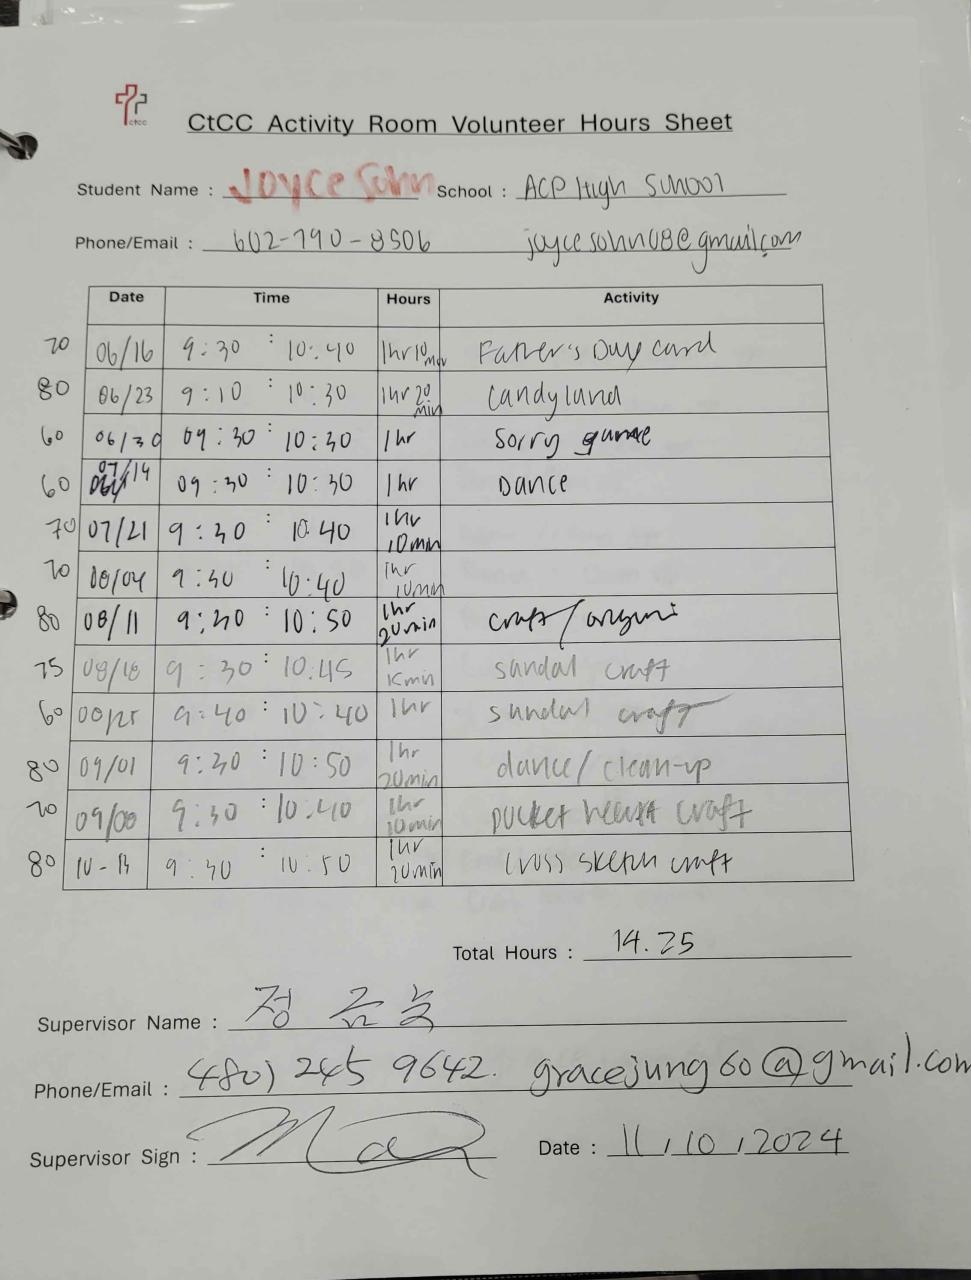 ctcc
CtCC Activity Room Volunteer Hours Sheet
Student Name : Joyce Sohn School : ACP High School
Phone/Email : 602-790-8506 joycesohn08@gmail.com
Date Time Hours Activity
70 06/16 9:30 : 10:40 1hr10min Father's Day card
80 06/23 9:10 : 10:30 1hr 20 min Candyland
60 06/30 09:30 : 10:30 1hr Sorry game
60 07/14 09:30 : 10:30 1hr Dance
70 07/21 9:30 : 10:40 1hr 10min
70 08/04 9:30 : 10:40 1hr 10min
80 08/11 9:30 : 10:50 1hr 20min craft/
75 08/18 9:30 : 10:45 1hr 15min sandal craft
60 08/25 9:40 : 10:40 1hr sandal craft
80 09/01 9:30 : 10:50 1hr 20min dance/clean-up
70 09/08 9:30 : 10:40 1hr 10min pocket heart craft
80 10-13 9:30 : 10:50 1hr 20min cross sketch craft
Total Hours : 14.25
Supervisor Name : 정
Phone/Email : 480) 245 9642. gracejung60@gmail.com
Supervisor Sign : Date : 11/10/2024